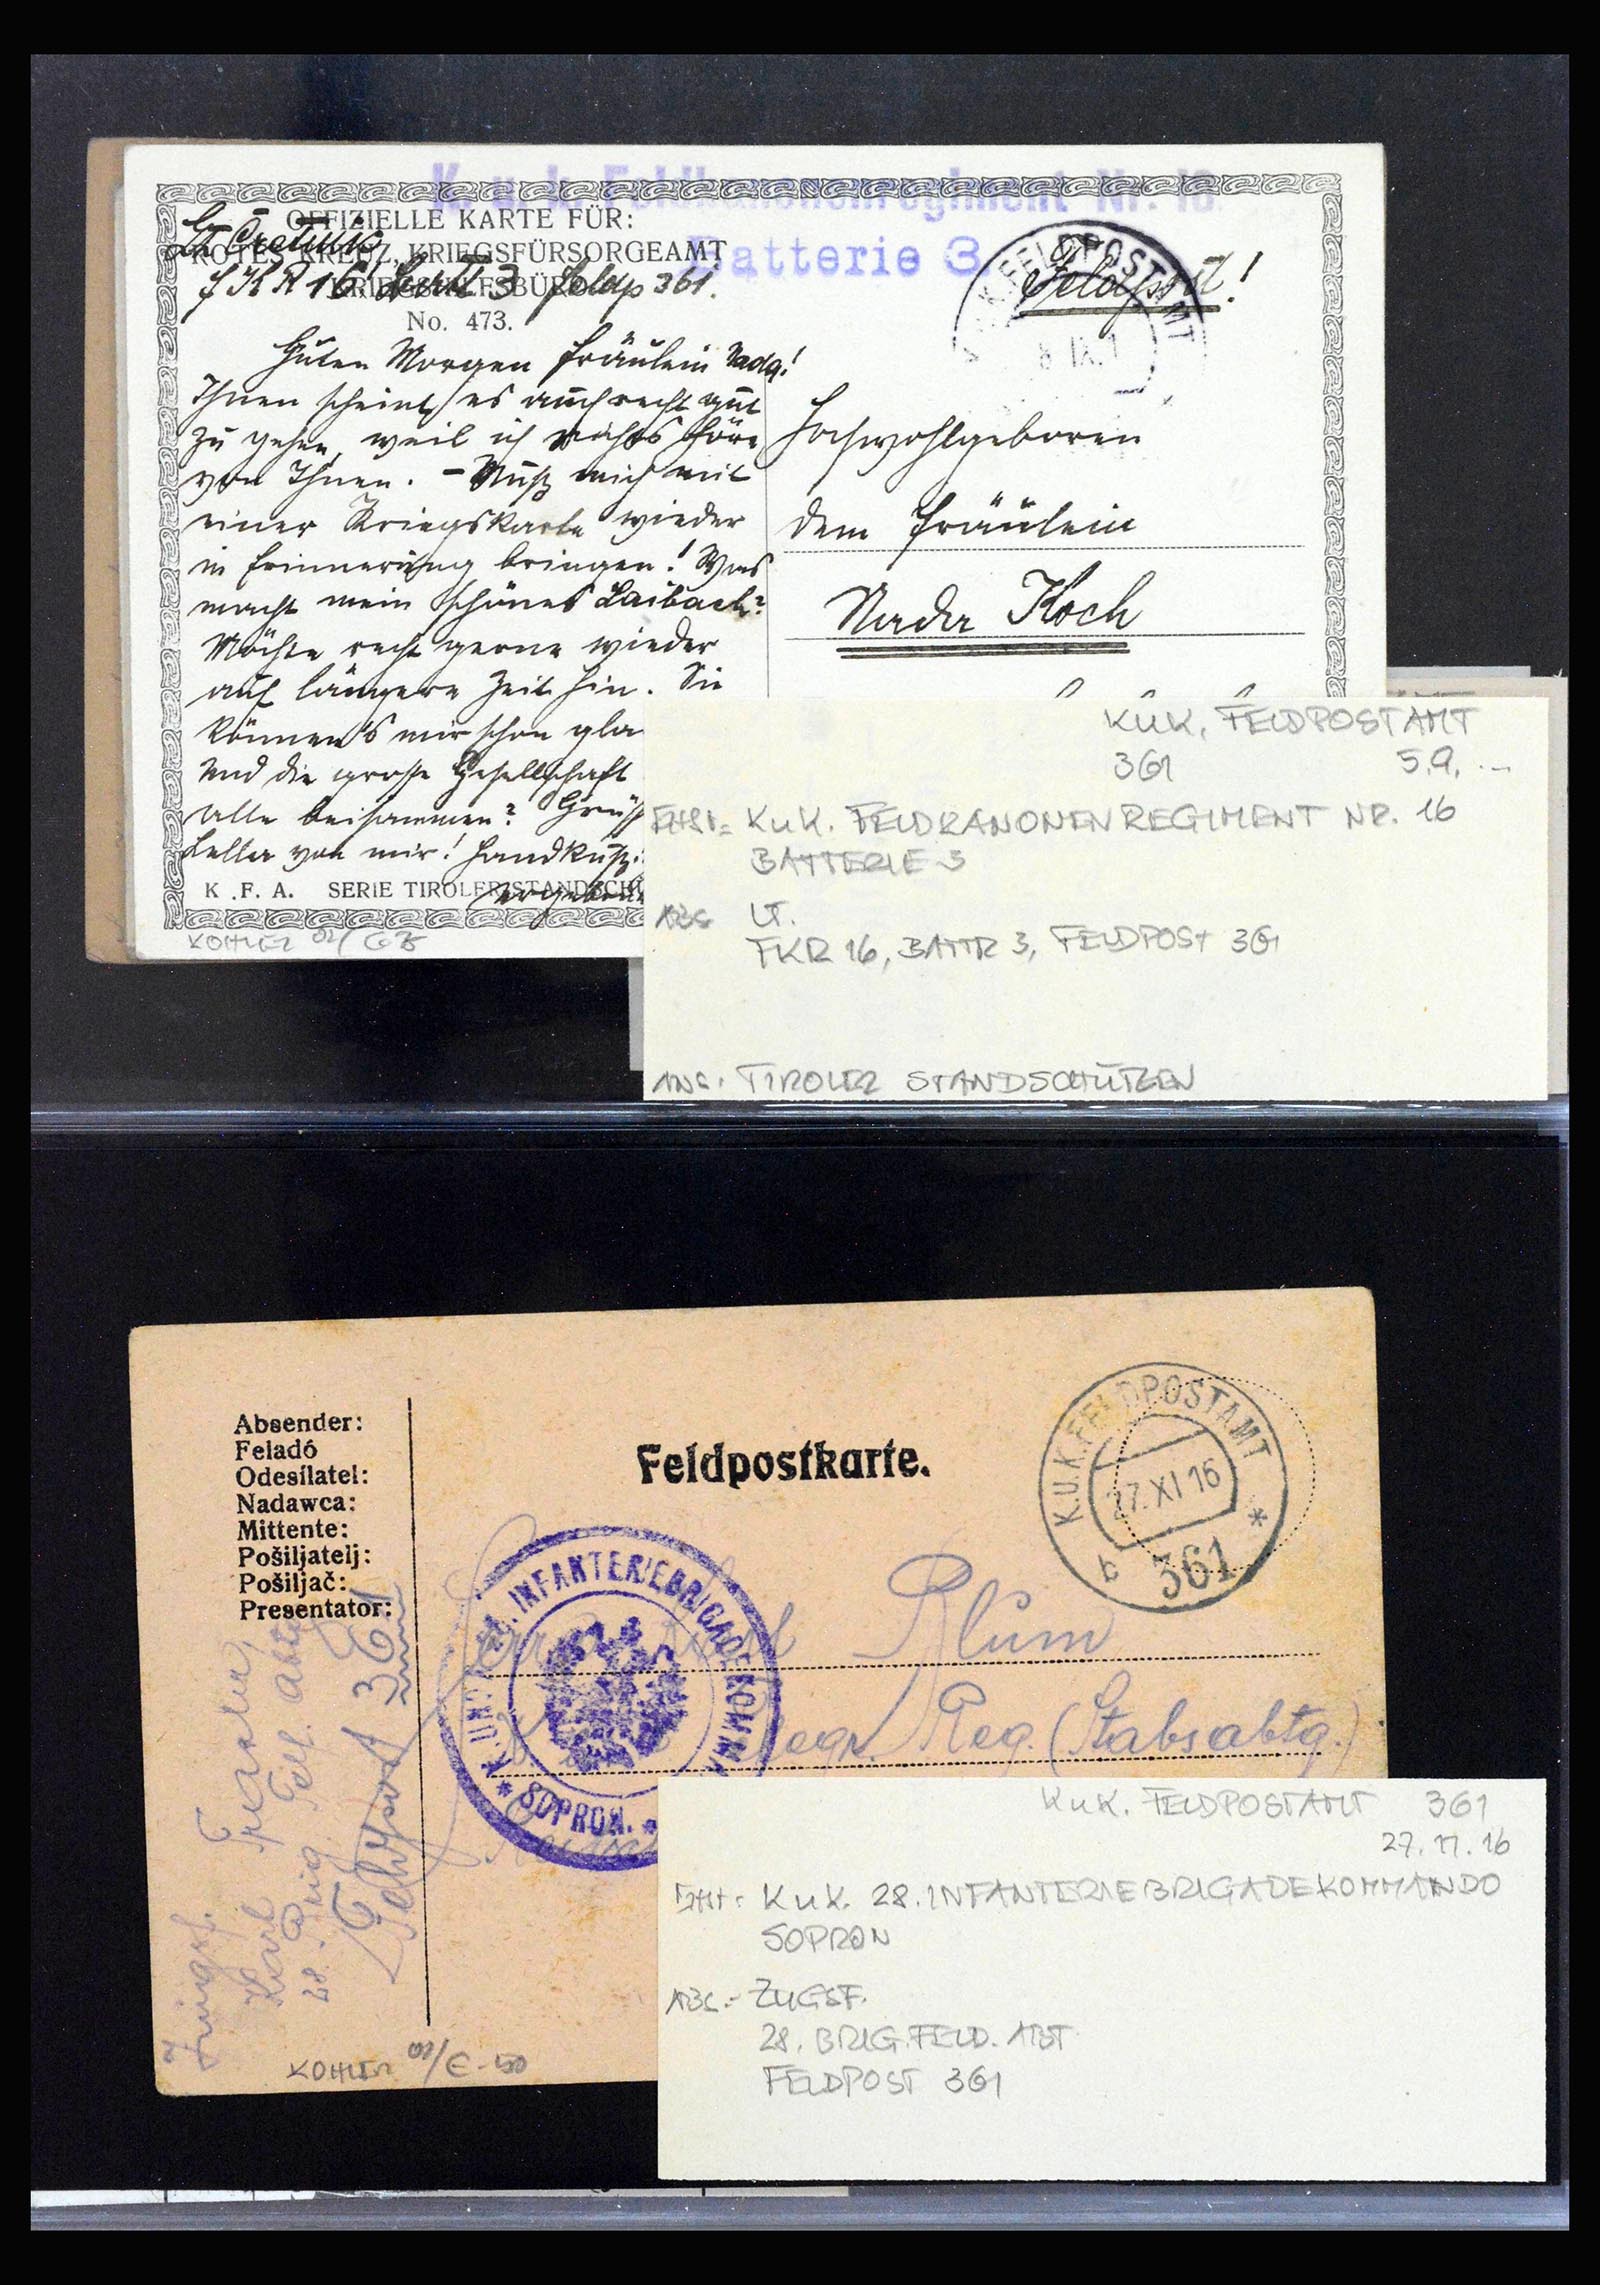 K. u. k. Feldkanonenregiment Nr. 16
Batterie 3
OFFIZIELLE KARTE FÜR:
ROTES KREUZ, KRIEGSFÜRSORGEAMT
KRIEGSHILFSBÜRO
No. 473.
Lt
FKR 16 Batt 3 Feldp 361.
Feldpost!
K.u.K. FELDPOSTAMT
IX. 1
Guten Morgen Fräulein Nada!
Ihnen scheint es auch recht gut
zu gehen, weil ich nichts höre
von Ihnen. – Muß mich mit
einer Kriegskarte wieder
in Erinnerung bringen! Was
macht mein schönes Laibach?
Möchte recht gerne wieder
auf längere Zeit hin. Sie
können's mir schon gla
Und die grosse Gesellschaft
alle beisammen? Grüß
von mir! Handkuß
K. F. A. SERIE TIROLER STANDSCHÜ
Hochwohlgeboren
dem Fräulein
Nada Koch
KOHLER 02/
K u K. FELDPOSTAMT
361 5.9. --
FHST= K u K. FELDKANONENREGIMENT NR. 16
BATTERIE 3
ABS LT.
FKR 16, BATTR 3, FELDPOST 361
ANS. TIROLER STANDSCHÜTZEN
Absender:
Feladó
Odesílatel:
Nadawca:
Mittente:
Pošiljatelj:
Pošiljač:
Presentator:
Feldpostkarte.
K.U.K. FELDPOSTAMT
27. XI 16
b 361 *
* K. UND K. 28. INFANTERIEBRIGADEKOMMA
SOPRON. *
Herrn Blum
Reg. (Stabsabtg.)
Zugsf.
Karl
28. Brig. Telf. Abt
Feldpost 361
KOHLER 02/ € -50
K u K. FELDPOSTAMT 361
27.11.16
FHST= K u K. 28. INFANTERIEBRIGADEKOMMANDO
SOPRON
ABS.- ZUGSF.
28. BRIG. FELD. ABT
FELDPOST 361